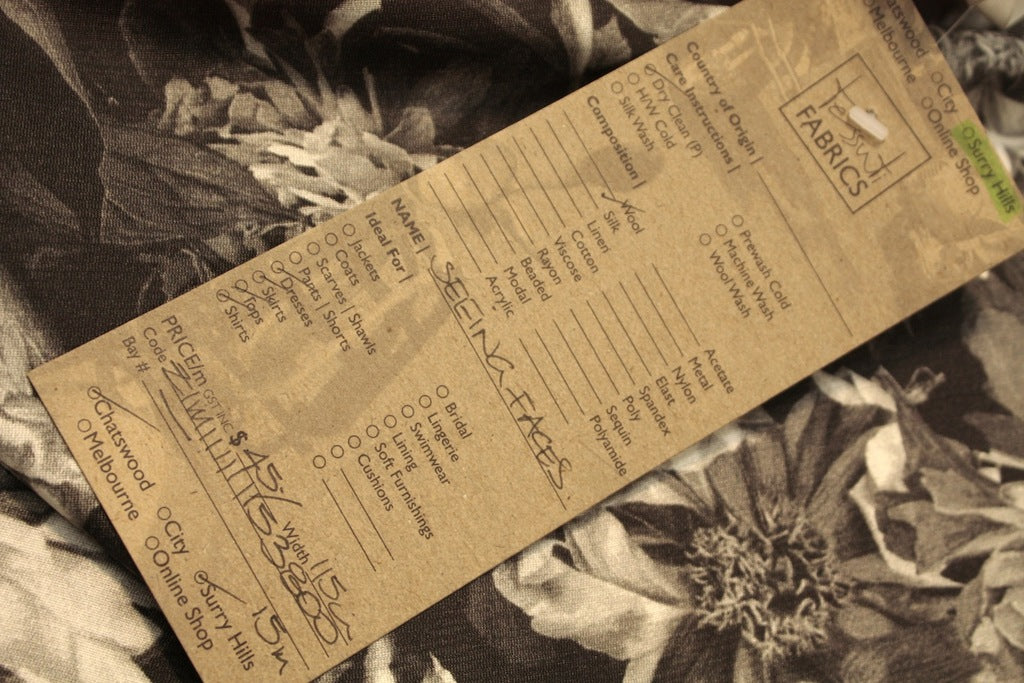 Chatswood
Melbourne
City
Online Shop
Surry Hills
Tessuti
FABRICS
Country of Origin |
Care Instructions |
Dry Clean (P)
H/W Cold
Silk Wash
Prewash Cold
Machine Wash
Wool Wash
Composition |
Wool
Silk
Linen
Cotton
Viscose
Rayon
Beaded
Modal
Acrylic
Acetate
Metal
Nylon
Elast
Spandex
Poly
Sequin
Polyamide
NAME | SEEING FACES.
Ideal For |
Jackets
Coats
Scarves | Shawls
Pants | Shorts
Dresses
Skirts
Tops
Shirts
Bridal
Lingerie
Swimwear
Lining
Soft Furnishings
Cushions
PRICE/m GST INC $ 45./ Width 115c
Code
Bay # 15m
Chatswood
Melbourne
City
Online Shop
Surry Hills